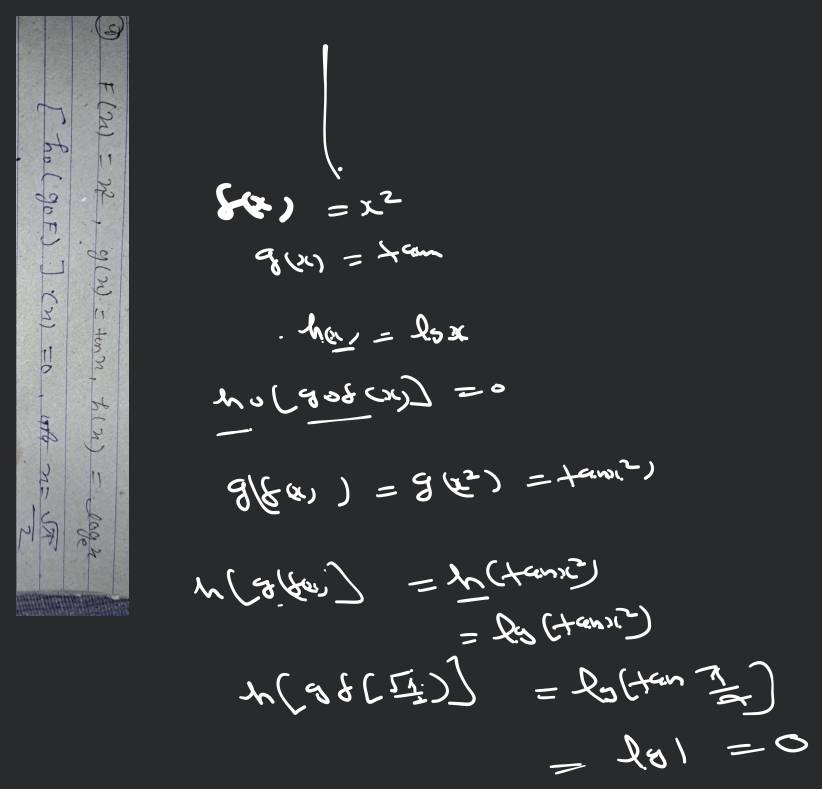 F(x) = x², g(x) = tan x, h(x) = logₑx
[ho(goF)](x) = 0, x = √π/2
f(x) = x²
g(x) = tan
h(x) = log x
ho[gof(x)] = 0
g(f(x)) = g(x²) = tan(x²)
h[g(f(x)] = h(tanx²)
= log(tanx²)
= log 1 = 0